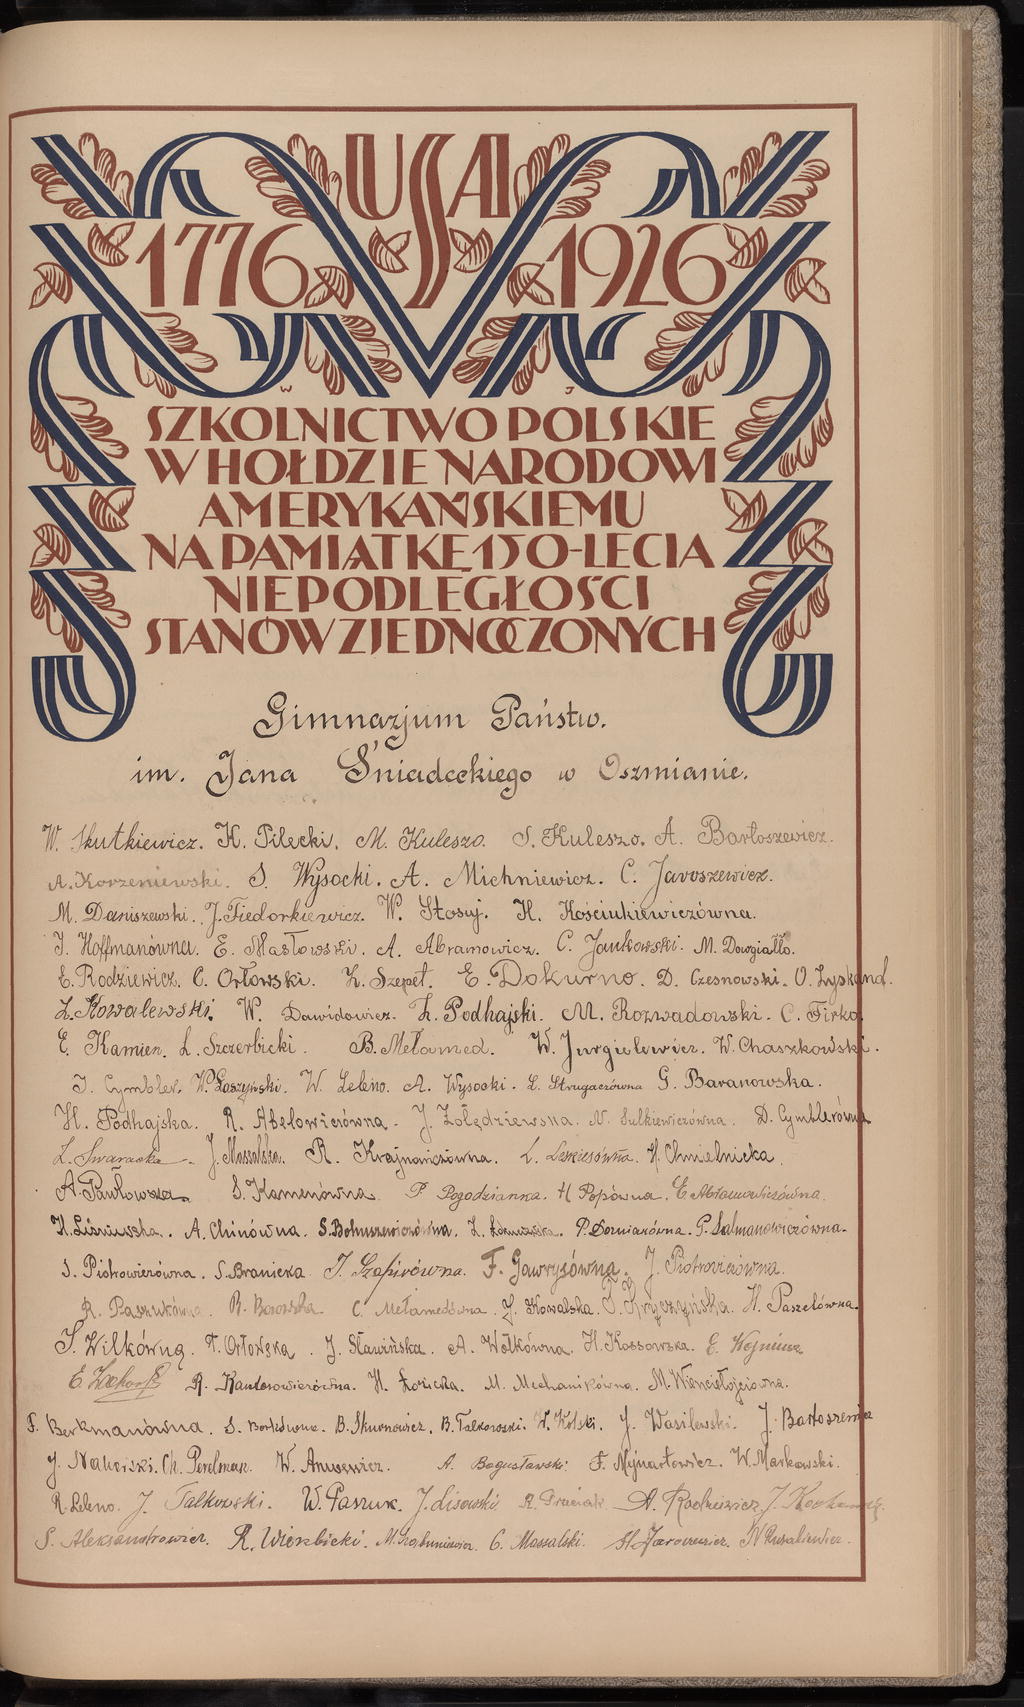 USA
1776 1926
W J
SZKOLNICTWO POLSKIE
W HOŁDZIE NARODOWI
AMERYKAŃSKIEMU
NA PAMIĄTKĘ 150-LECIA
NIEPODLEGŁOŚCI
STANÓW ZJEDNOCZONYCH
Gimnazjum Państw.
im. Jana Śniadeckiego w Oszmianie.
W. Skutkiewicz. K. Pilecki. M. Kuleszo. S. Kuleszo. A. Bartoszewicz.
A. Korzeniewski. S. Wysocki. A. Michniewicz. C. Jaroszewicz.
M. Daniszewski. J. Fiedorkiewicz. W. Stosuj. H. Kościukiewiczówna.
J. Hoffmanówna. E. Masłowski. A. Abramowicz. C. Jankowski. M. Dowgiałło.
E. Rodziewicz. C. Orłowski. K. Szepet. E. Dokurno. D. Czesnowski. O. Łyskand.
L. Kowalewski. W. Dawidowicz. Z. Podhajski. M. Rozwadowski. C. Firko.
E. Kamien. L. Szczerbicki. B. Mełamed. W. Jurgielewicz. W. Chaszkowski.
J. Cymbler. W. Łoszyński. W. Leleno. A. Wysocki. L. Strugaczówna G. Baranowska.
H. Podhajska. R. Abelowiczówna. J. Żołędziewska. N. Sulkiewiczówna. D. Cymblerówna
L. Swaracka. J. Massalska. R. Krajnowiczówna. L. Leskiesówna. H. Chmielnicka.
A. Pawłowska. S. Kamenówna. P. Pogodzianka. H. Popówna. E. Abramowiczówna.
H. Liśniewska. A. Chinówna. S. Bohuszewiczówna. P. Dorniakówna. G. Salmanowiczówna.
S. Piotrowiczówna. S. Branicka. J. Szapirówna. F. Gawrysówna. J. Piotrowiczówna.
R. Paszukówna. R. Borowska. C. Mełamedówna. J. Kowalska. T. Kryczyńska. H. Paszelówna.
S. Wilkówna. T. Orłowska. J. Sławińska. A. Wołkówna. H. Kossowska. E. Wojniusz
E. R. Kantorowiczówna. H. Łozicka. M. Mechanikówna. M. Wiencisłojciówna.
F. Berkmanówna. S. Borkówna. B. Skurnowicz. B. Talkowski. W. Kolski. J. Wasilewski. J. Bartoszewicz
J. Naherski. Ch. Perelman. W. Anusewicz. A. Bogusławski. F. Mynartowicz. W. Markowski.
R. Leleno. J. Talkowski. W. Paszuk. J. Lisowski. A. Rodziewicz
S. Aleksandrowicz. R. Wierzbicki. C. Massalski. N. Rusaliewicz.